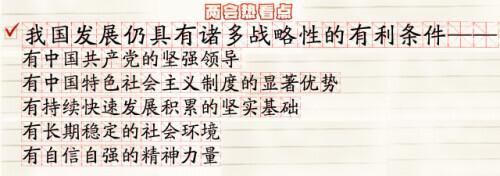 两会热看点
我国发展仍具有诸多战略性的有利条件——
有中国共产党的坚强领导
有中国特色社会主义制度的显著优势
有持续快速发展积累的坚实基础
有长期稳定的社会环境
有自信自强的精神力量